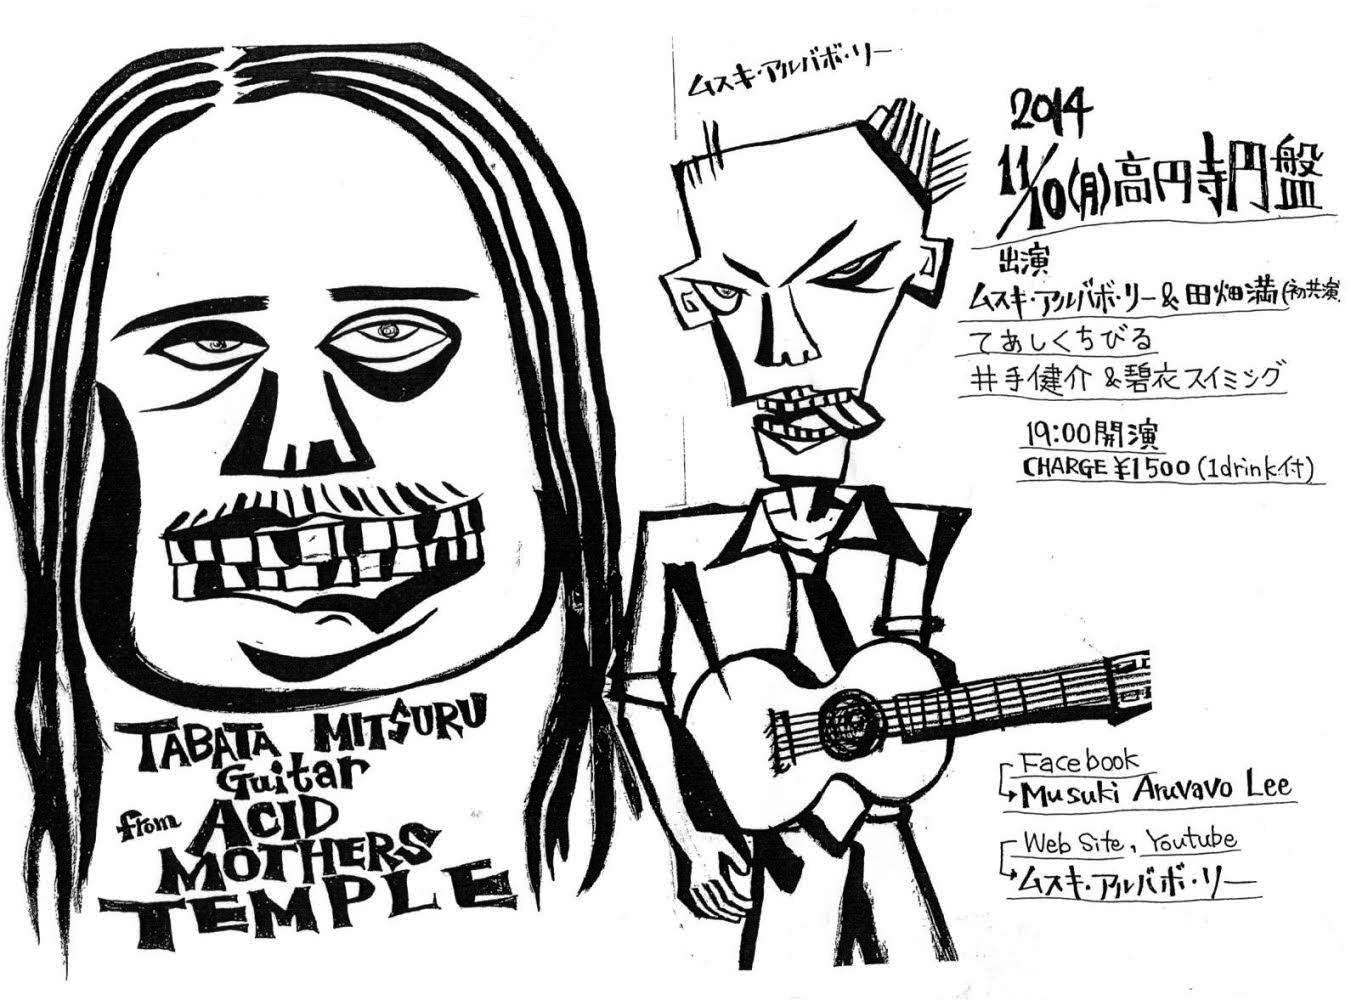 ムスキ・アルバボ・リー
2014
11/10(月)高円寺円盤
出演
ムスキ・アルバボ・リー&田畑満(初共演)
てあしくちびる
井手健介&碧衣スイミング
19:00開演
CHARGE ¥1500 (1drink付)
TABATA MITSURU
Guitar
from ACID
MOTHERS
TEMPLE
Facebook
Musuki Aruvavo Lee
Web Site, Youtube
ムスキ・アルバボ・リー